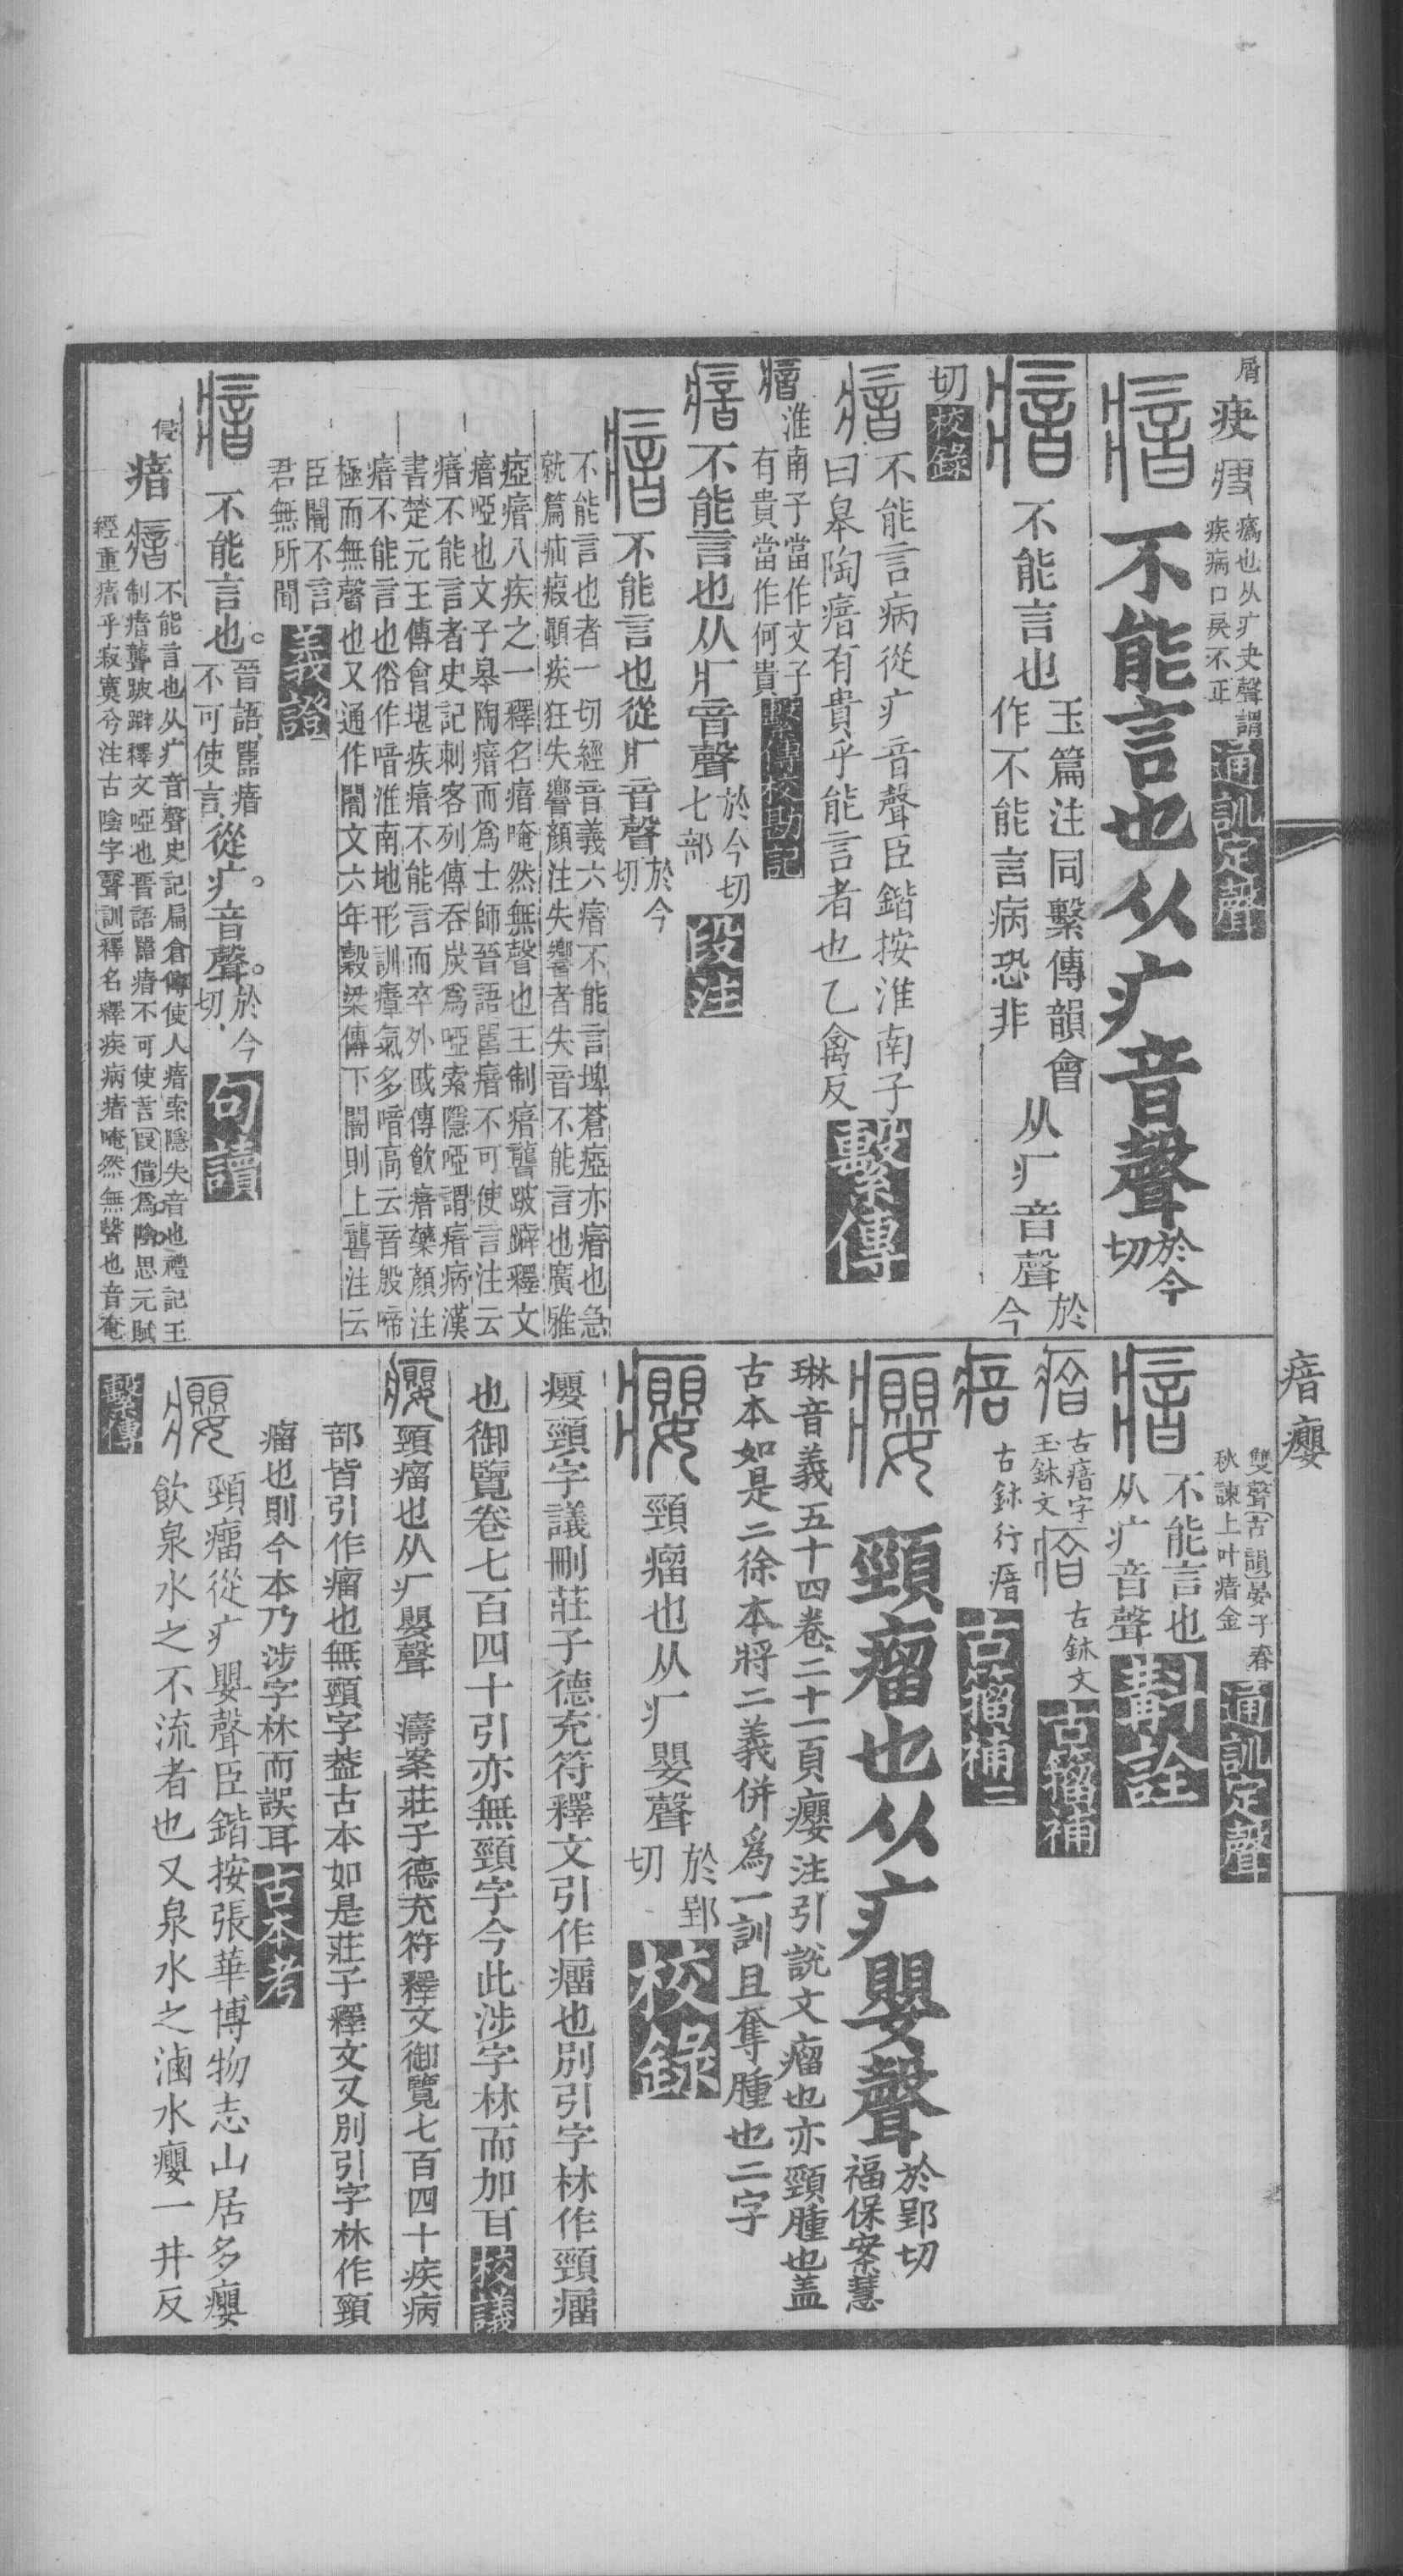 屑 疾 𤶊 瘑也从疒夬聲謂
疾病口戾不正 通訓定聲
瘖 不能言也从疒音聲 於今
切
瘖 不能言也 玉篇注同繫傳韻會
作不能言病恐非 从疒音聲 於
今
切 校錄
瘖 不能言病從疒音聲臣鍇按淮南子
曰皋陶瘖有貴乎能言者也乙禽反 繫傳
瘖 淮南子當作文子
有貴當作何貴 繫傳校勘記
瘖 不能言也从疒音聲 於今切
七部 段注
瘖 不能言也從疒音聲 於今
切
不能言也者一切經音義六瘖不能言埤蒼瘂亦瘖也急
就篇疝瘕顚疾狂失響顏注失響者失音不能言也廣雅
瘂瘖八疾之一釋名瘖唵然無聲也王制瘖聾跛躃釋文
瘖啞也文子皋陶瘖而爲士師晉語嚚瘖不可使言注云
瘖不能言者史記刺客列傳吞炭爲啞索隱啞謂瘖病漢
書楚元王傳會堪疾瘖不能言而卒外戚傳飲瘖藥顏注
瘖不能言也俗作喑淮南地形訓瘴氣多喑高云音殷啼
極而無聲也又通作闇文六年穀梁傳下闇則上聾注云
臣闇不言
君無所聞 義證
瘖 不能言也 晉語嚚瘖
不可使言 從疒音聲 於今
切 句讀
侵 瘖 瘖 不能言也从疒音聲史記扁倉傳使人瘖索隱失音也禮記王
制瘖聾跛躃釋文啞也晉語嚚瘖不可使言叚借爲陰思元賦
經重瘖乎寂寞兮注古陰字聲訓釋名釋疾病瘖唵然無聲也音奄
雙聲古韻晏子春
秋諫上叶瘖金 通訓定聲
瘖 不能言也
从疒音聲 斠詮
瘖 古瘖字
玉鉢文 瘖 古鉢文 古籀補
瘖 古鉢行瘖 古籀補二
癭 頸瘤也从疒嬰聲 於郢切
福保案慧
琳音義五十四卷二十一頁癭注引說文瘤也亦頸腫也盖
古本如是二徐本將二義併爲一訓且奪腫也二字
癭 頸瘤也从疒嬰聲 於郢
切 校錄
癭頸字議刪莊子德充符釋文引作瘤也別引字林作頸瘤
也御覽卷七百四十引亦無頸字今此涉字林而加耳 校議
癭 頸瘤也从疒嬰聲 濤案莊子德充符釋文御覽七百四十疾病
部皆引作瘤也無頸字葢古本如是莊子釋文又別引字林作頸
瘤也則今本乃涉字林而誤耳 古本考
癭 頸瘤從疒嬰聲臣鍇按張華博物志山居多癭
飲泉水之不流者也又泉水之滷水癭一井反
繫傳
瘖癭